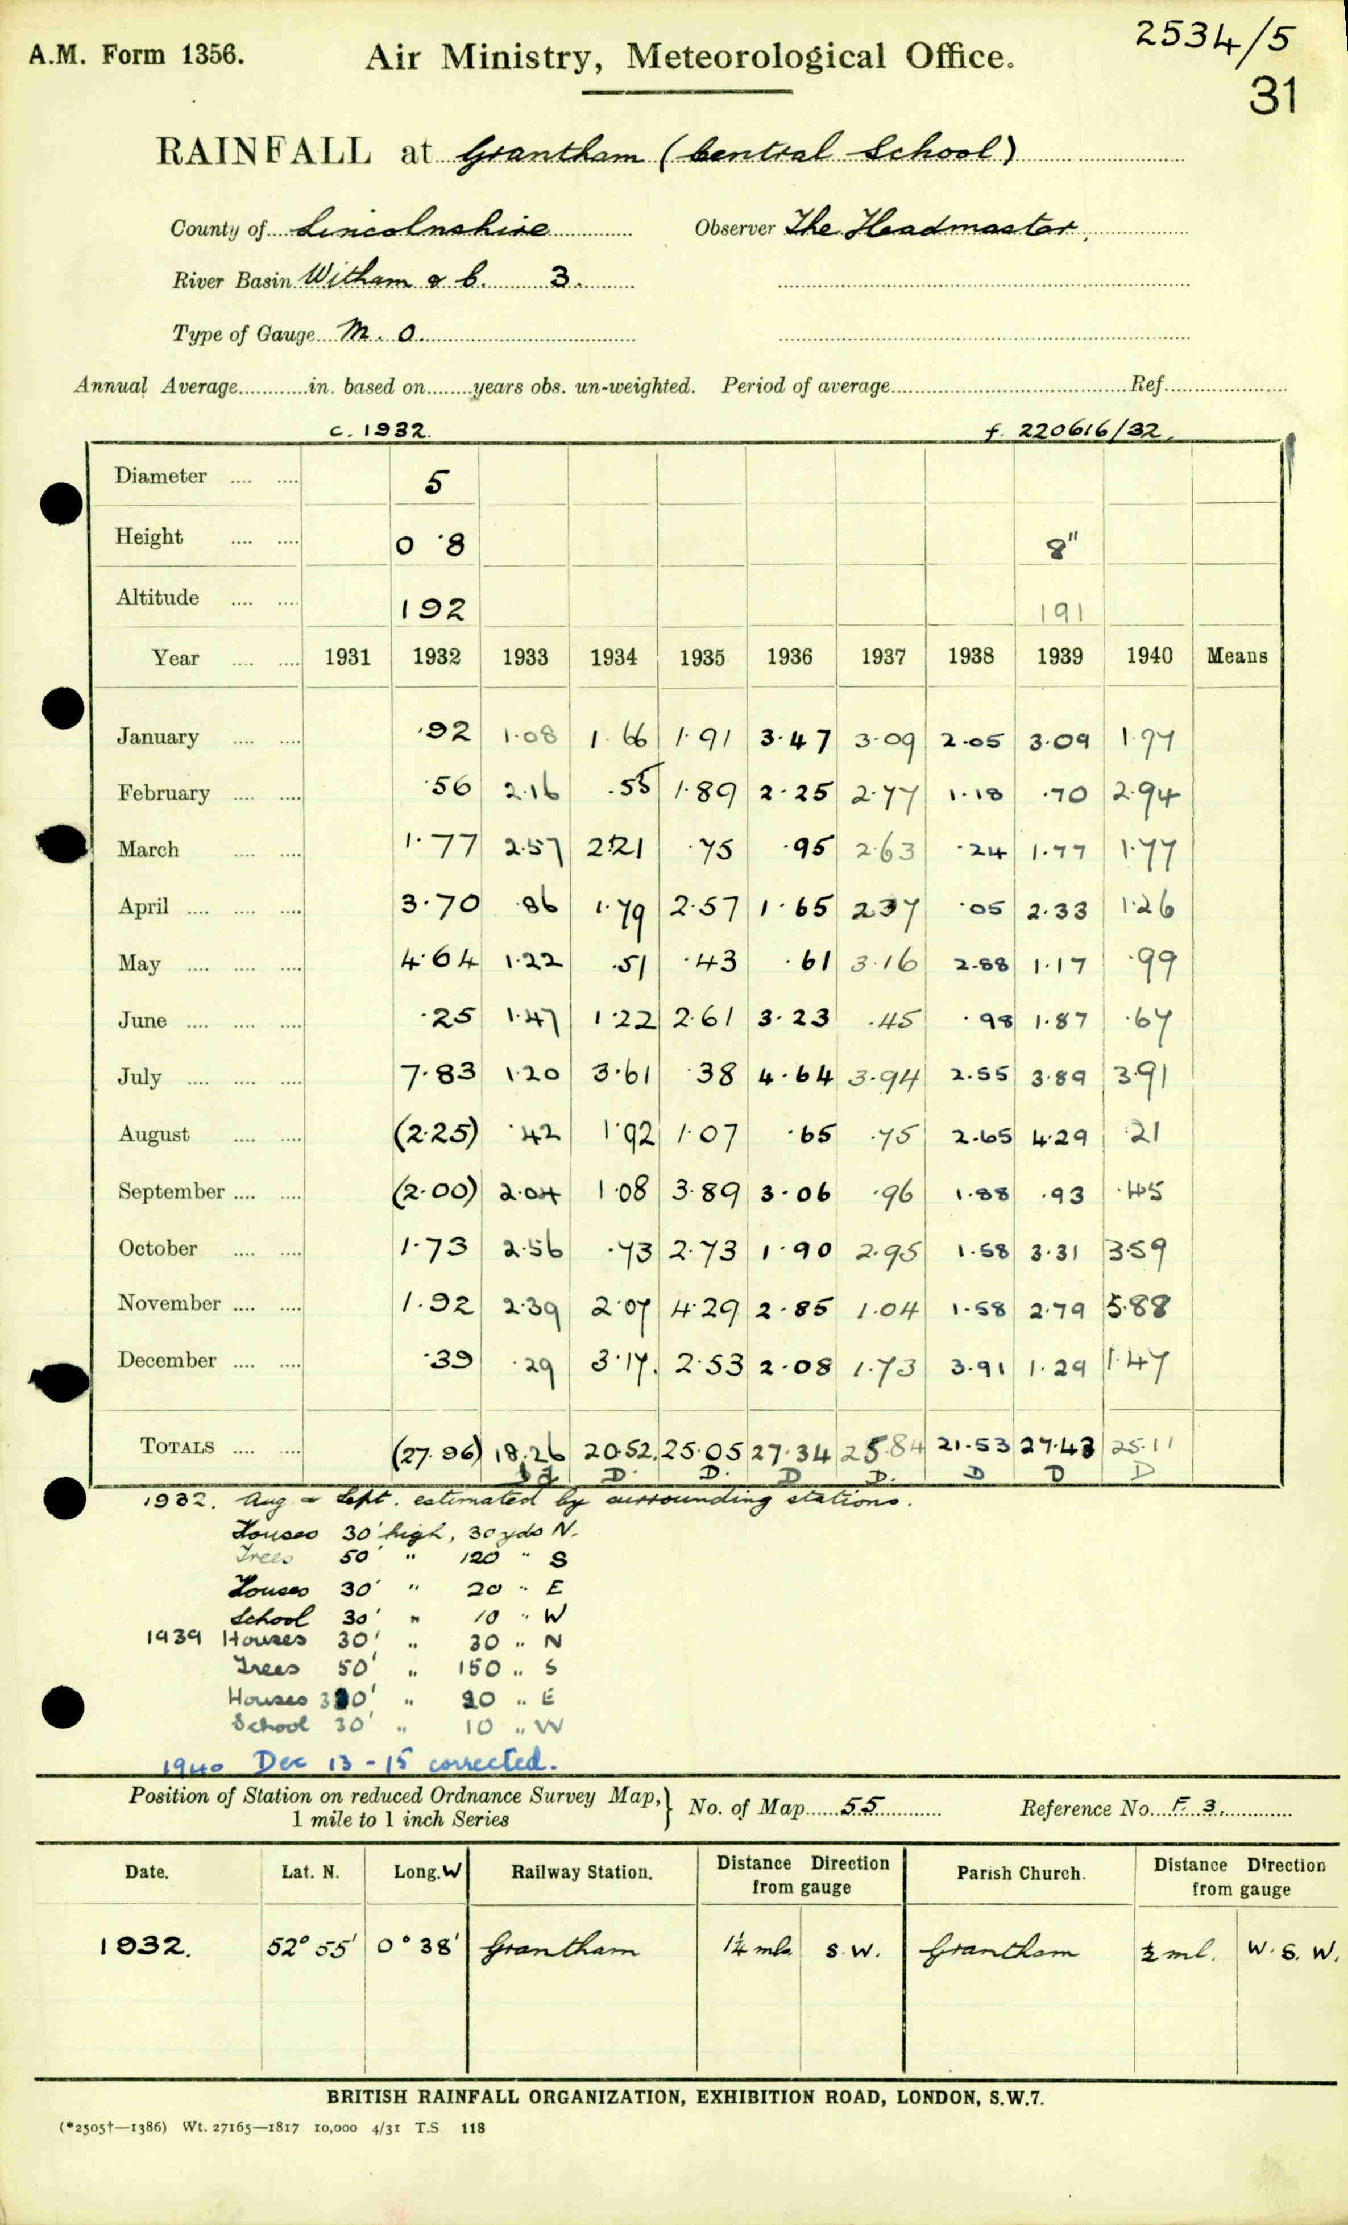 2534/5
A.M. Form 1356. Air Ministry, Meteorological Office.
31
RAINFALL at Grantham (Central School)
County of Lincolnshire Observer The Headmaster.
River Basin Witham & C. 3.
Type of Gauge M. O.
Annual Average in. based on years obs. un-weighted. Period of average Ref.
c. 1932. f. 220616/32.
Diameter 5
Height 0 ·8 8"
Altitude 192 191
Year 1931 1932 1933 1934 1935 1936 1937 1938 1939 1940 Means
January ·92 1·08 1·66 1·91 3·47 3·09 2·05 3·09 1·97
February ·56 2·16 ·55 1·89 2·25 2·77 1·18 ·70 2·94
March 1·77 2·57 2·21 ·75 ·95 2·63 ·24 1·77 1·77
April 3·70 ·86 1·79 2·57 1·65 2·37 ·05 2·33 1·26
May 4·64 1·22 ·51 ·43 ·61 3·16 2·88 1·17 ·99
June ·25 1·47 1·22 2·61 3·23 ·45 ·98 1·87 ·67
July 7·83 1·20 3·61 ·38 4·64 3·94 2·55 3·89 3·91
August (2·25) ·42 1·92 1·07 ·65 ·75 2·65 4·29 ·21
September (2·00) 2·04 1·08 3·89 3·06 ·96 1·88 ·93 ·45
October 1·73 2·56 ·73 2·73 1·90 2·95 1·58 3·31 3·59
November 1·92 2·39 2·07 4·29 2·85 1·04 1·58 2·79 5·88
December ·39 ·29 3·17. 2·53 2·08 1·73 3·91 1·29 1·47
TOTALS (27·96) 18·26 20·52. 25·05 27·34 25·84 21·53 27·43 25·11
D. D. D D. D D D
1932. Aug & Sept. estimated by surrounding stations.
Houses 30' high, 30 yds N.
Trees 50' " 120 " S
Houses 30' " 20 " E
School 30' " 10 " W
1939 Houses 30' " 30 " N
Trees 50' " 150 " S
Houses 30' " 20 " E
School 30' " 10 " W
1940 Dec 13 - 15 corrected.
Position of Station on reduced Ordnance Survey Map, 1 mile to 1 inch Series } No. of Map 55 Reference No. F. 3.
Date. Lat. N. Long. W Railway Station. Distance Direction from gauge Parish Church. Distance Direction from gauge
1932. 52° 55' 0° 38' Grantham 1¼ mls S.W. Grantham ½ ml. W.S.W.
BRITISH RAINFALL ORGANIZATION, EXHIBITION ROAD, LONDON, S.W.7.
(*2505†—1386) Wt. 27165—1817 10,000 4/31 T.S 118